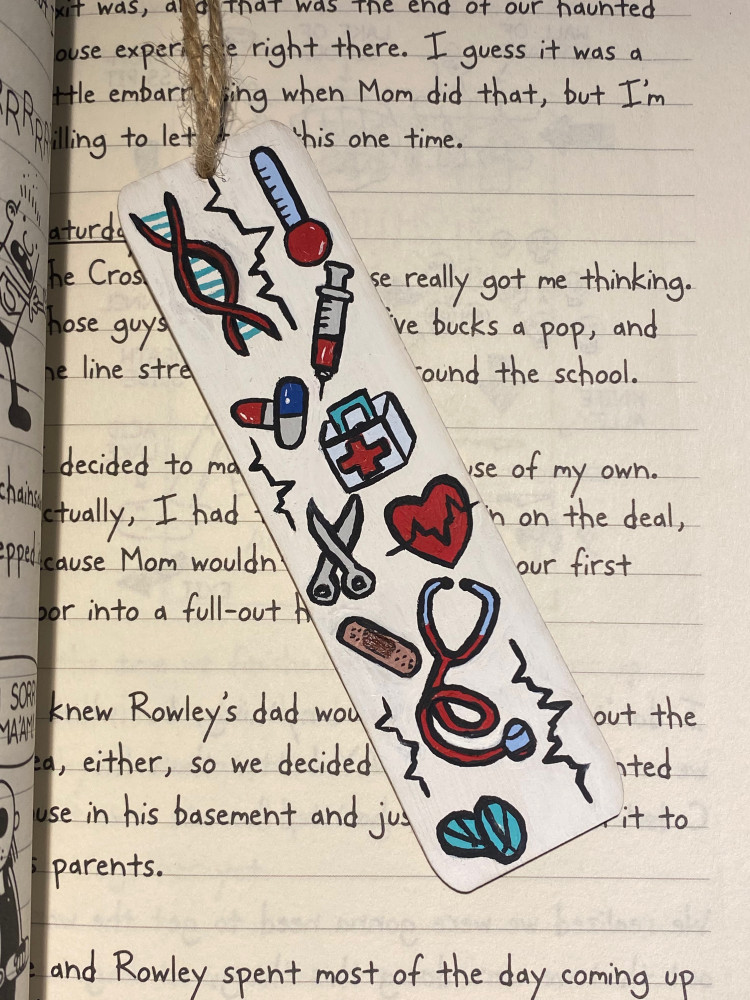 it was, and that was the end of our haunted
ouse experience right there. I guess it was a
ttle embarrassing when Mom did that, but I'm
illing to let this one time.
aturda
he Cros se really got me thinking.
hose guys ive bucks a pop, and
he line stre round the school.
decided to ma use of my own.
ctually, I had in on the deal,
cause Mom wouldn' our first
oor into a full-out h
knew Rowley's dad wou out the
ea, either, so we decided nted
use in his basement and jus it to
s parents.
e and Rowley spent most of the day coming up
RRRRRR
chainsa
epped
SORR
MA'AM